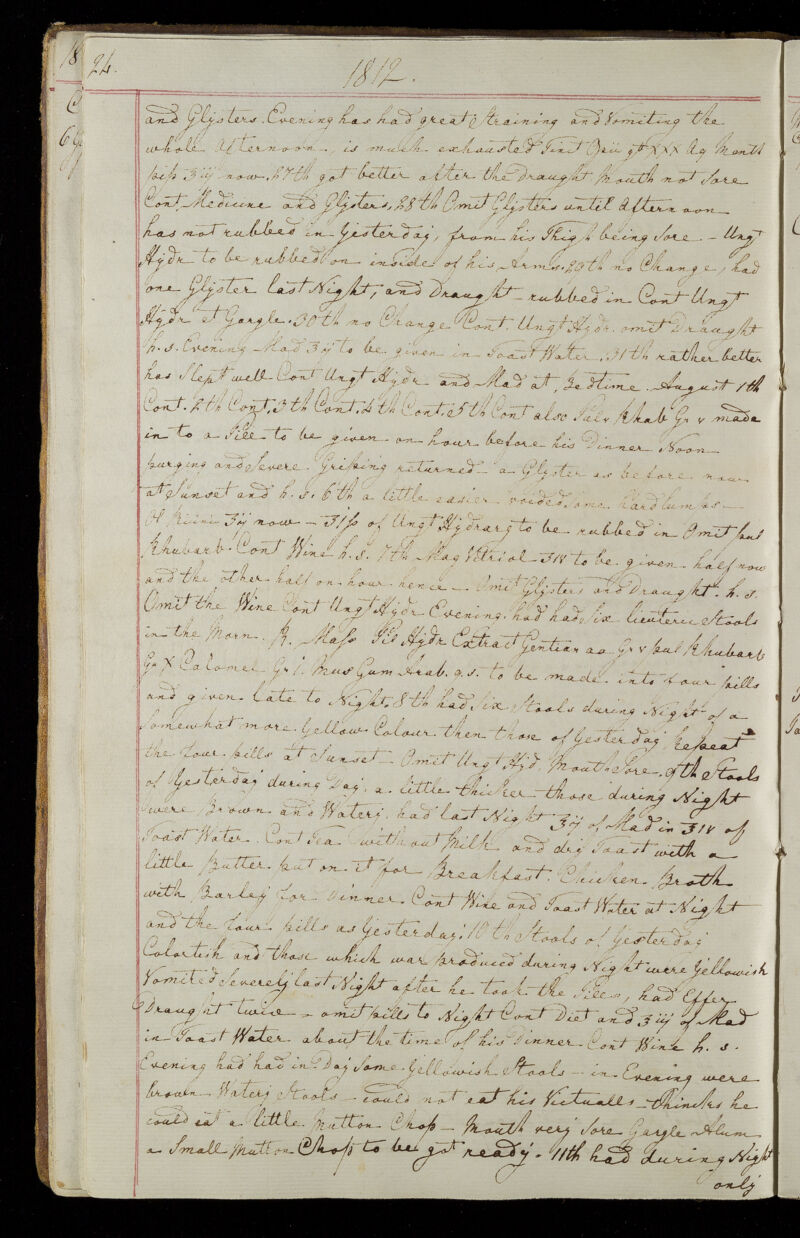 24.
1812.
and Glysters. Evening has had great Straining and Vomiting the
whole Afternoon, is much exhausted Tinct Opii gt XXX Aq Menth
pip ʒiij now. 27th got better after the Draught Mouth not Sore
Cont. Medicine and Glysters. 28th Omit Glysters until Afternoon
has not rubbed in Yesterday, from his Thigh being Sore. – Ungt
Hydr to be rubbed on inside of his Arms. 29th no Change, had
one Glyster last Night, and Draught – rubbed in Cont Ungt
Hydr et Gargle. 30th no Change Cont. Ungt Hydr. omit Draught
h.s. Evening Mad ʒij to be given in Toast Water. 31th rather better
has Slept well Cont Ungt Hydr and Mad at Bedtime. August 1th
Cont. 2th Cont. 3th Cont. 4th Cont. 5th Cont also Pulv Rhab Gr v made
in to a Pill to be given on hour before his Dinner Noon
purging and Severe Griping returned – a Glyster as before now
at Sunset and h.s. 6th a little easier voided Some hard lumps –
Ol Ricini ʒij now – ʒiss of Ungt Hydrarg to be rubbed in Omit pul
Rhubarb. Cont Wine h.s. 7th Mag Vitriol ʒiv to be given half now
and the other half on hour hence – Omit Glysters and Draught. h.s.
Omit the Wine Cont Ungt Hydr Evening. had had Six lienteric Stools
in the Morn. R. Mass Pil Hydr Extract Gentian aa Gr v pul Rhubarb
Gr X Calomel Gr i. Mus Gum Arab. q.s. to be made into four pills
and given late to Night. 8th had Six Stools during Night of a
Somewhat more Yellow Colour then those of Yesterday Repeat
the four pills at Sunset – Omit Ungt Hyd. Mouth Sore. 9th Stools
of Yesterday during Day, a little thicker those during Night
were Brown and Watery. had last Night ʒij of Mad in ʒiv of
Toast Water. Cont Tea without Milk and dry Toast with a
little Butter put on it for Breakfast. Chicken Broth
with Barley for Dinner. Cont Wine and Toast Water at Night
and the four pills as Yesterday. 10th Stools of Yesterday
Colourish and those which war produced during Night were Yellowish
Vomited Severely last Night after he took the Pills, had Effer
Draught twice – omit pills to Night Cont Diet and ʒiij of Mad
in Toast Water about the time of his Dinner Cont Wine h.s.
Evening had had in Day Some Yellowish Stools – in Evening were
brown Watery Stools – could not eat his Victualls – thinks he
could eat a little Mutton Chop – Mouth very Sore Gargle Alum
a Small Mutton Chop to be got ready. 11th had during Night
only